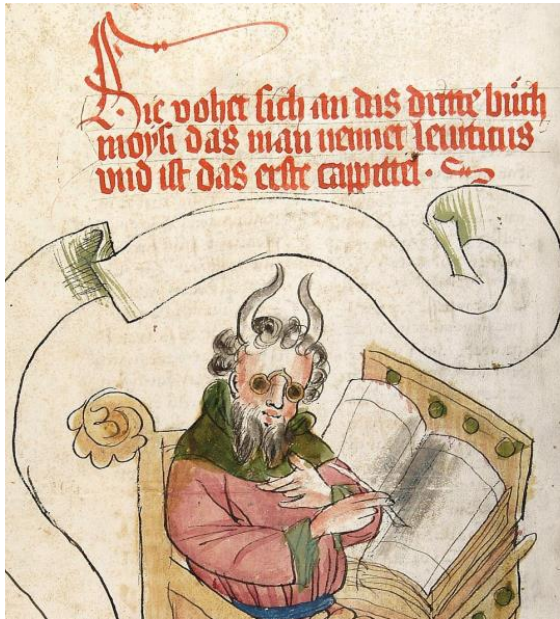 Hie vohet sich an das dritte bůch
moysi das man nennet leuiticus
vnd ist das erste cappittel .